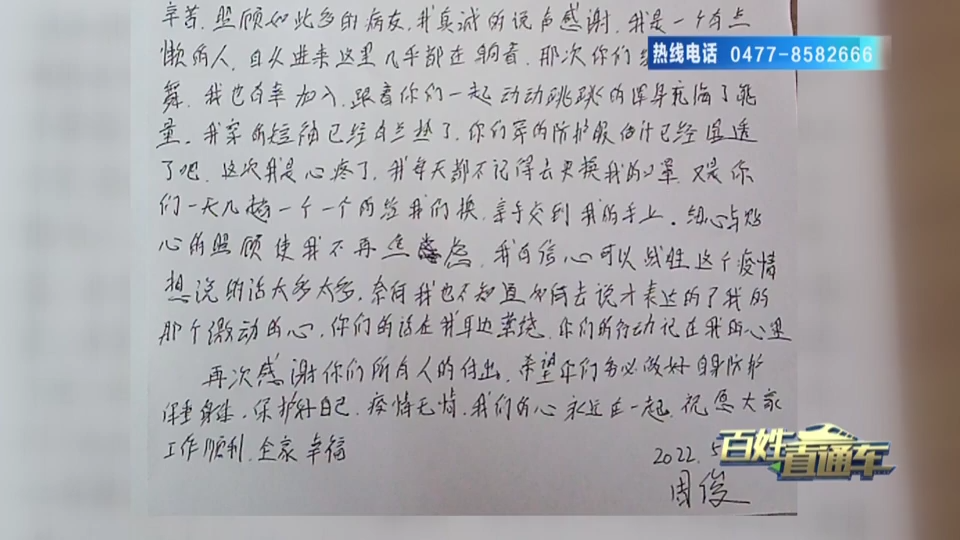 辛苦.照顾如此多的病友,我真诚的说声感谢,我是一个有点
懒的人,自从进来这里几乎都在躺着,那次你们
热线电话 0477-8582666
舞.我也有幸加入.跟着你们一起动动跳跳的浑身充满了能
量.我穿的短袖已经有点热了,你们穿的防护服估计已经湿透
了吧.这次我是心疼了,我每天都不记得去更换我的口罩,又是你
们一天几趟一个一个的给我们换.亲手交到我的手上.细心与贴
心的照顾使我不再焦虑.我有信心可以战胜这个疫情
想说的话太多太多,奈何我也不知道如何去说才表达的了我的
那个激动的心,你们的话在我耳边萦绕.你们的行动记在我的心里
再次感谢你们所有人的付出,希望你们务必做好自身防护
保重身体,保护好自己.疫情无情,我们的心永远在一起.祝愿大家
工作顺利.全家幸福
2022.5
周俊
百姓直通车